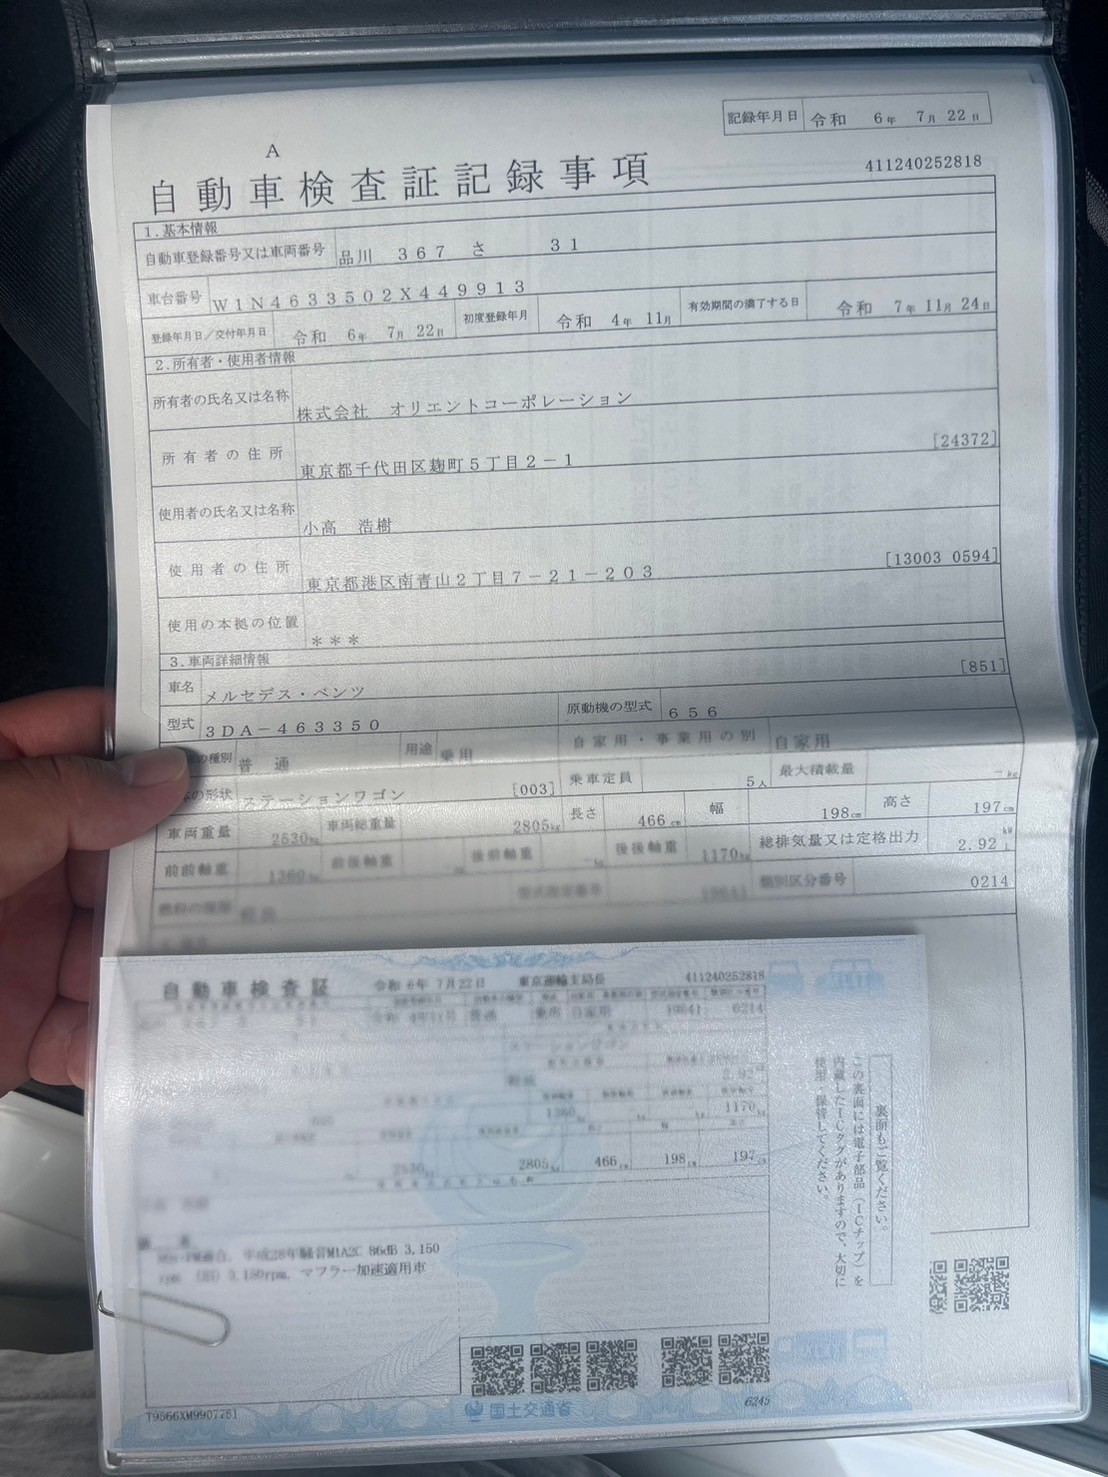 記録年月日 令和 6年 7月 22日
A
自動車検査証記録事項
411240252818
1.基本情報
自動車登録番号又は車両番号 品川 367 さ 31
車台番号 W1N4633502X449913
登録年月日/交付年月日 令和 6年 7月 22日 初度登録年月 令和 4年 11月 有効期間の満了する日 令和 7年 11月 24日
2.所有者・使用者情報
所有者の氏名又は名称 株式会社 オリエントコーポレーション
所有者の住所 東京都千代田区麹町5丁目2-1 [24372]
使用者の氏名又は名称 小高 浩樹
使用者の住所 東京都港区南青山2丁目7-21-203 [13003 0594]
使用の本拠の位置 ***
3.車両詳細情報
車名 メルセデス・ベンツ [851]
型式 3DA-463350 原動機の型式 656
の種別 普通 用途 乗用 自家用・事業用の別 自家用
の形状 ステーションワゴン [003] 乗車定員 5人 最大積載量 -kg
車両重量 2530kg 車両総重量 2805kg 長さ 466cm 幅 198cm 高さ 197cm
前前軸重 1360kg 前後軸重 後前軸重 kg 後後軸重 1170kg 総排気量又は定格出力 2.92 kW L
型式指定番号 19641 類別区分番号 0214
自動車検査証 令和 6年 7月22日 東京運輸支局長 411240252818
令和 4年11月 普通 乗用 自家用 19641 0214
ステーションワゴン
1360kg kg kg 1170kg
2530kg 2805kg 466cm 198cm 197cm
平成28年騒音M1A2C 86dB 3,150
rpm 3,150rpm, マフラー加速適用車
裏面もご覧ください。
この裏面には電子部品(ICチップ)を
内蔵したICタグがありますので、大切に
使用・保管してください。
T9566XM9907751
国土交通省
6245